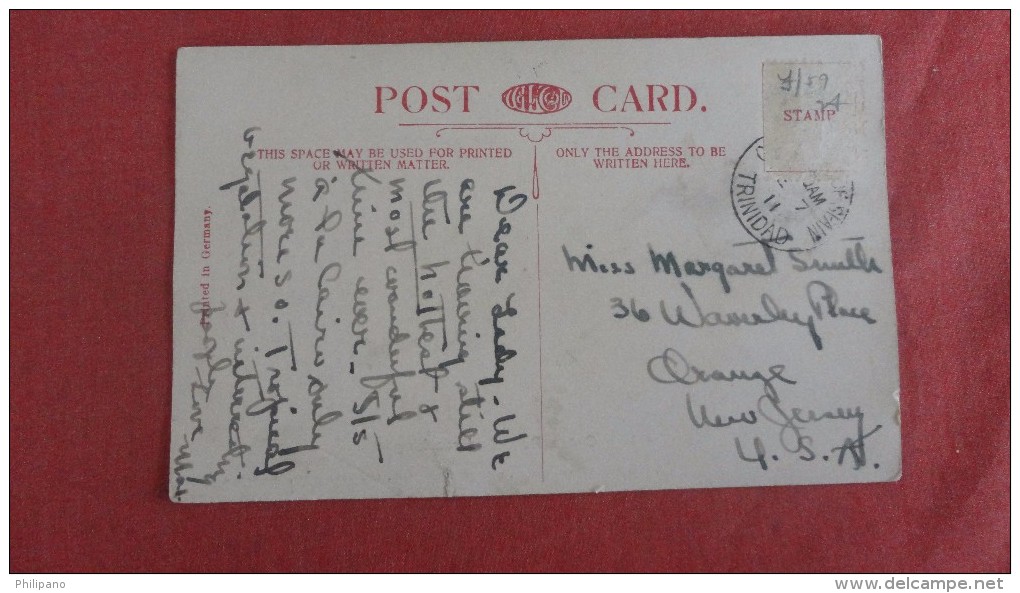 POST CARD.
THIS SPACE MAY BE USED FOR PRINTED
OR WRITTEN MATTER.
ONLY THE ADDRESS TO BE
WRITTEN HERE.
4/59
24
STAMP
OF SPAIN
JAM
11 7
TRINIDAD
Miss Margaret Smith
36 Place
Orange
New Jersey
U. S. A.
Dear Lady - We
are having still
the hottest &
most wonderful
time ever -
a la Cairo only
more so. Tropical
vegetation &
Printed in Germany.
Philipano
www.delcampe.net